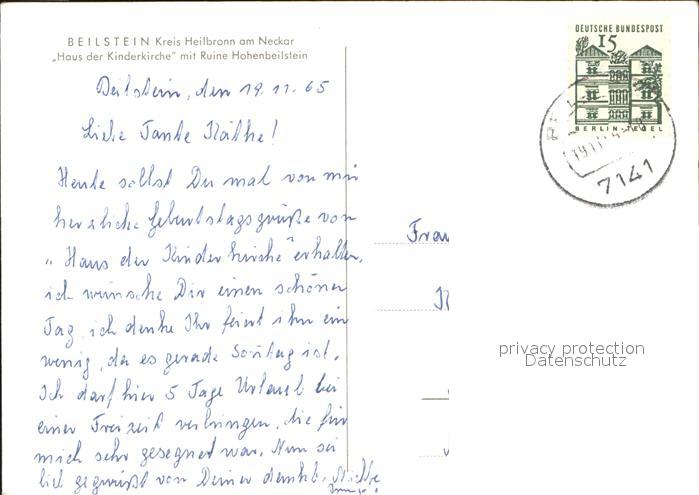 BEILSTEIN Kreis Heilbronn am Neckar
„Haus der Kinderkirche" mit Ruine Hohenbeilstein
DEUTSCHE BUNDESPOST
15
BERLIN-TEGEL
7141
Beilstein, den 19.11.65
Liebe Tante Käthe!
Heute sollst Du mal von mir
herzliche Geburtstagsgrüße von
„Haus der Kinderkirche" erhalten,
ich wünsche Dir einen schönen
Tag, ich denke Ihr feiert ihn ein
wenig, da es gerade Sonntag ist.
Ich darf hier 5 Tage Urlaub bei
einer Freizeit verbringen, die für
mich sehr gesegnet war. Nun sei
lieb gegrüßt von Deiner dankb. Nichte
Frau
privacy protection
Datenschutz